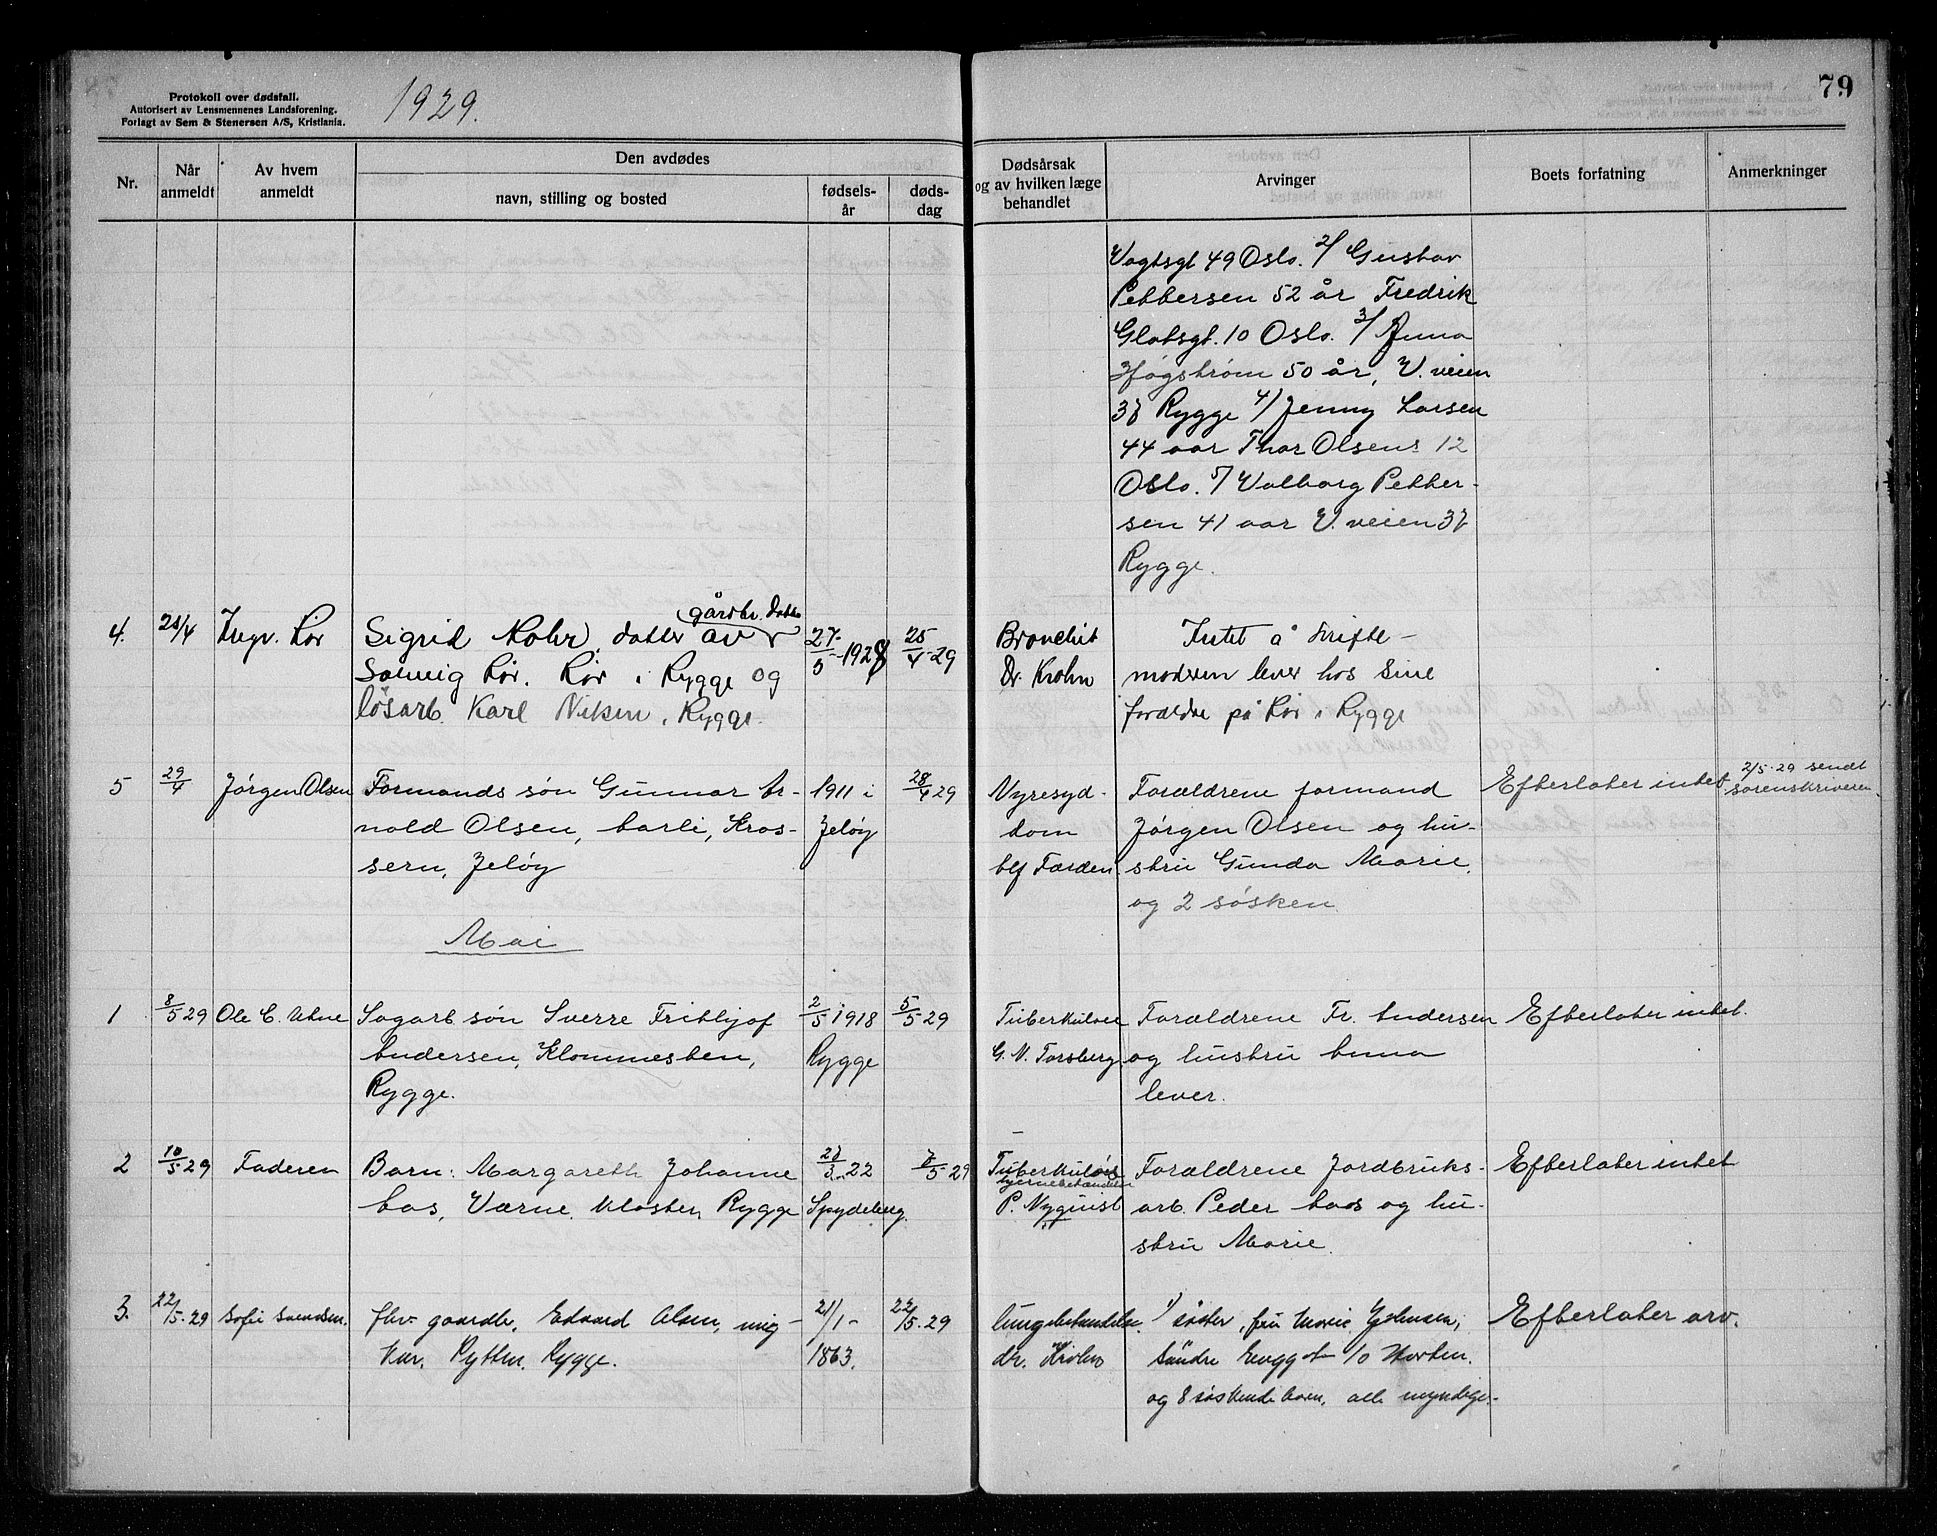 Protokoll over dødsfall.
Autorisert av Lensmennenes Landsforening.
Forlagt av Sem & Stenersen A/S, Kristiania.
1929.
79
Nr.
Når anmeldt
Av hvem anmeldt
Den avdødes
navn, stilling og bosted
fødsels-år
døds-dag
Dødsårsak og av hvilken læge behandlet
Arvinger
Boets forfatning
Anmerkninger
Vogtsgt 49 Oslo. 2/ Gustav
Pettersen 52 år Fredrik
Glatsgt. 10 Oslo. 3/ Anna
Høgstrøm 50 år, V. veien
37 Rygge 4/ Jenny Larsen
44 aar Thor Olsens 12
Oslo. 5/ Valborg Petter-
sen 41 aar V. veien 37
Rygge.
4. 25/4 Ingv. Rør Sigrid Rohr, datter av gårdbr. datter 27/5-1928 25/4-29 Bronchit Intet å skifte -
Solveig Rør. Rør i Rygge og Dr. Krohn moderen lever hos sine
løsarb. Karl Nilsen, Rygge. foreldre på Rør i Rygge
5 29/4 Jørgen Olsen Formands søn Gunnar Ar- 1911 i 28/4 29 Nyresyg- Forældrene formand Efterlater intet 2/5-29 sendt
nold Olsen, Karli, Kros- Jeløy dom Jørgen Olsen og hu- sorenskriveren.
sern, Jeløy blf Farden. stru Gunda Marie.
og 2 søsken.
Mai
1 8/5 29 Ole C. Uhne Sagarb. søn Sverre Frithjof 2/5 1918 5/5-29 Tuberkulose Forældrene Fr. Andersen Efterlater intet.
Andersen, Klommesten, Rygge G. N. Torsberg. og hustru Anna
Rygge. lever.
2 10/5 29 Faderen Barn: Margareth Johanne 23/3 22 7/5-29 Tuberkuløs Forældrene Jordbruks- Efterlater intet
hjernebetændelse
Aas, Værne Kloster, Rygge Spydeberg. P. Nyquist arb. Peder Aas og hu-
stru Marie.
3. 22/5-29 Sofie Svendsen. fhv. gaardbr. Edvard Olsen, ung- 21/1- 22/5.29 lungebetendelse. 1/ søster, fru Marie Johnsen, Efterlater arv.
kar, Rytter, Rygge. 1863. dr. Krohn Søndre Enggt 10 Horten.
og 8 søskendebarn, alle myndige.-